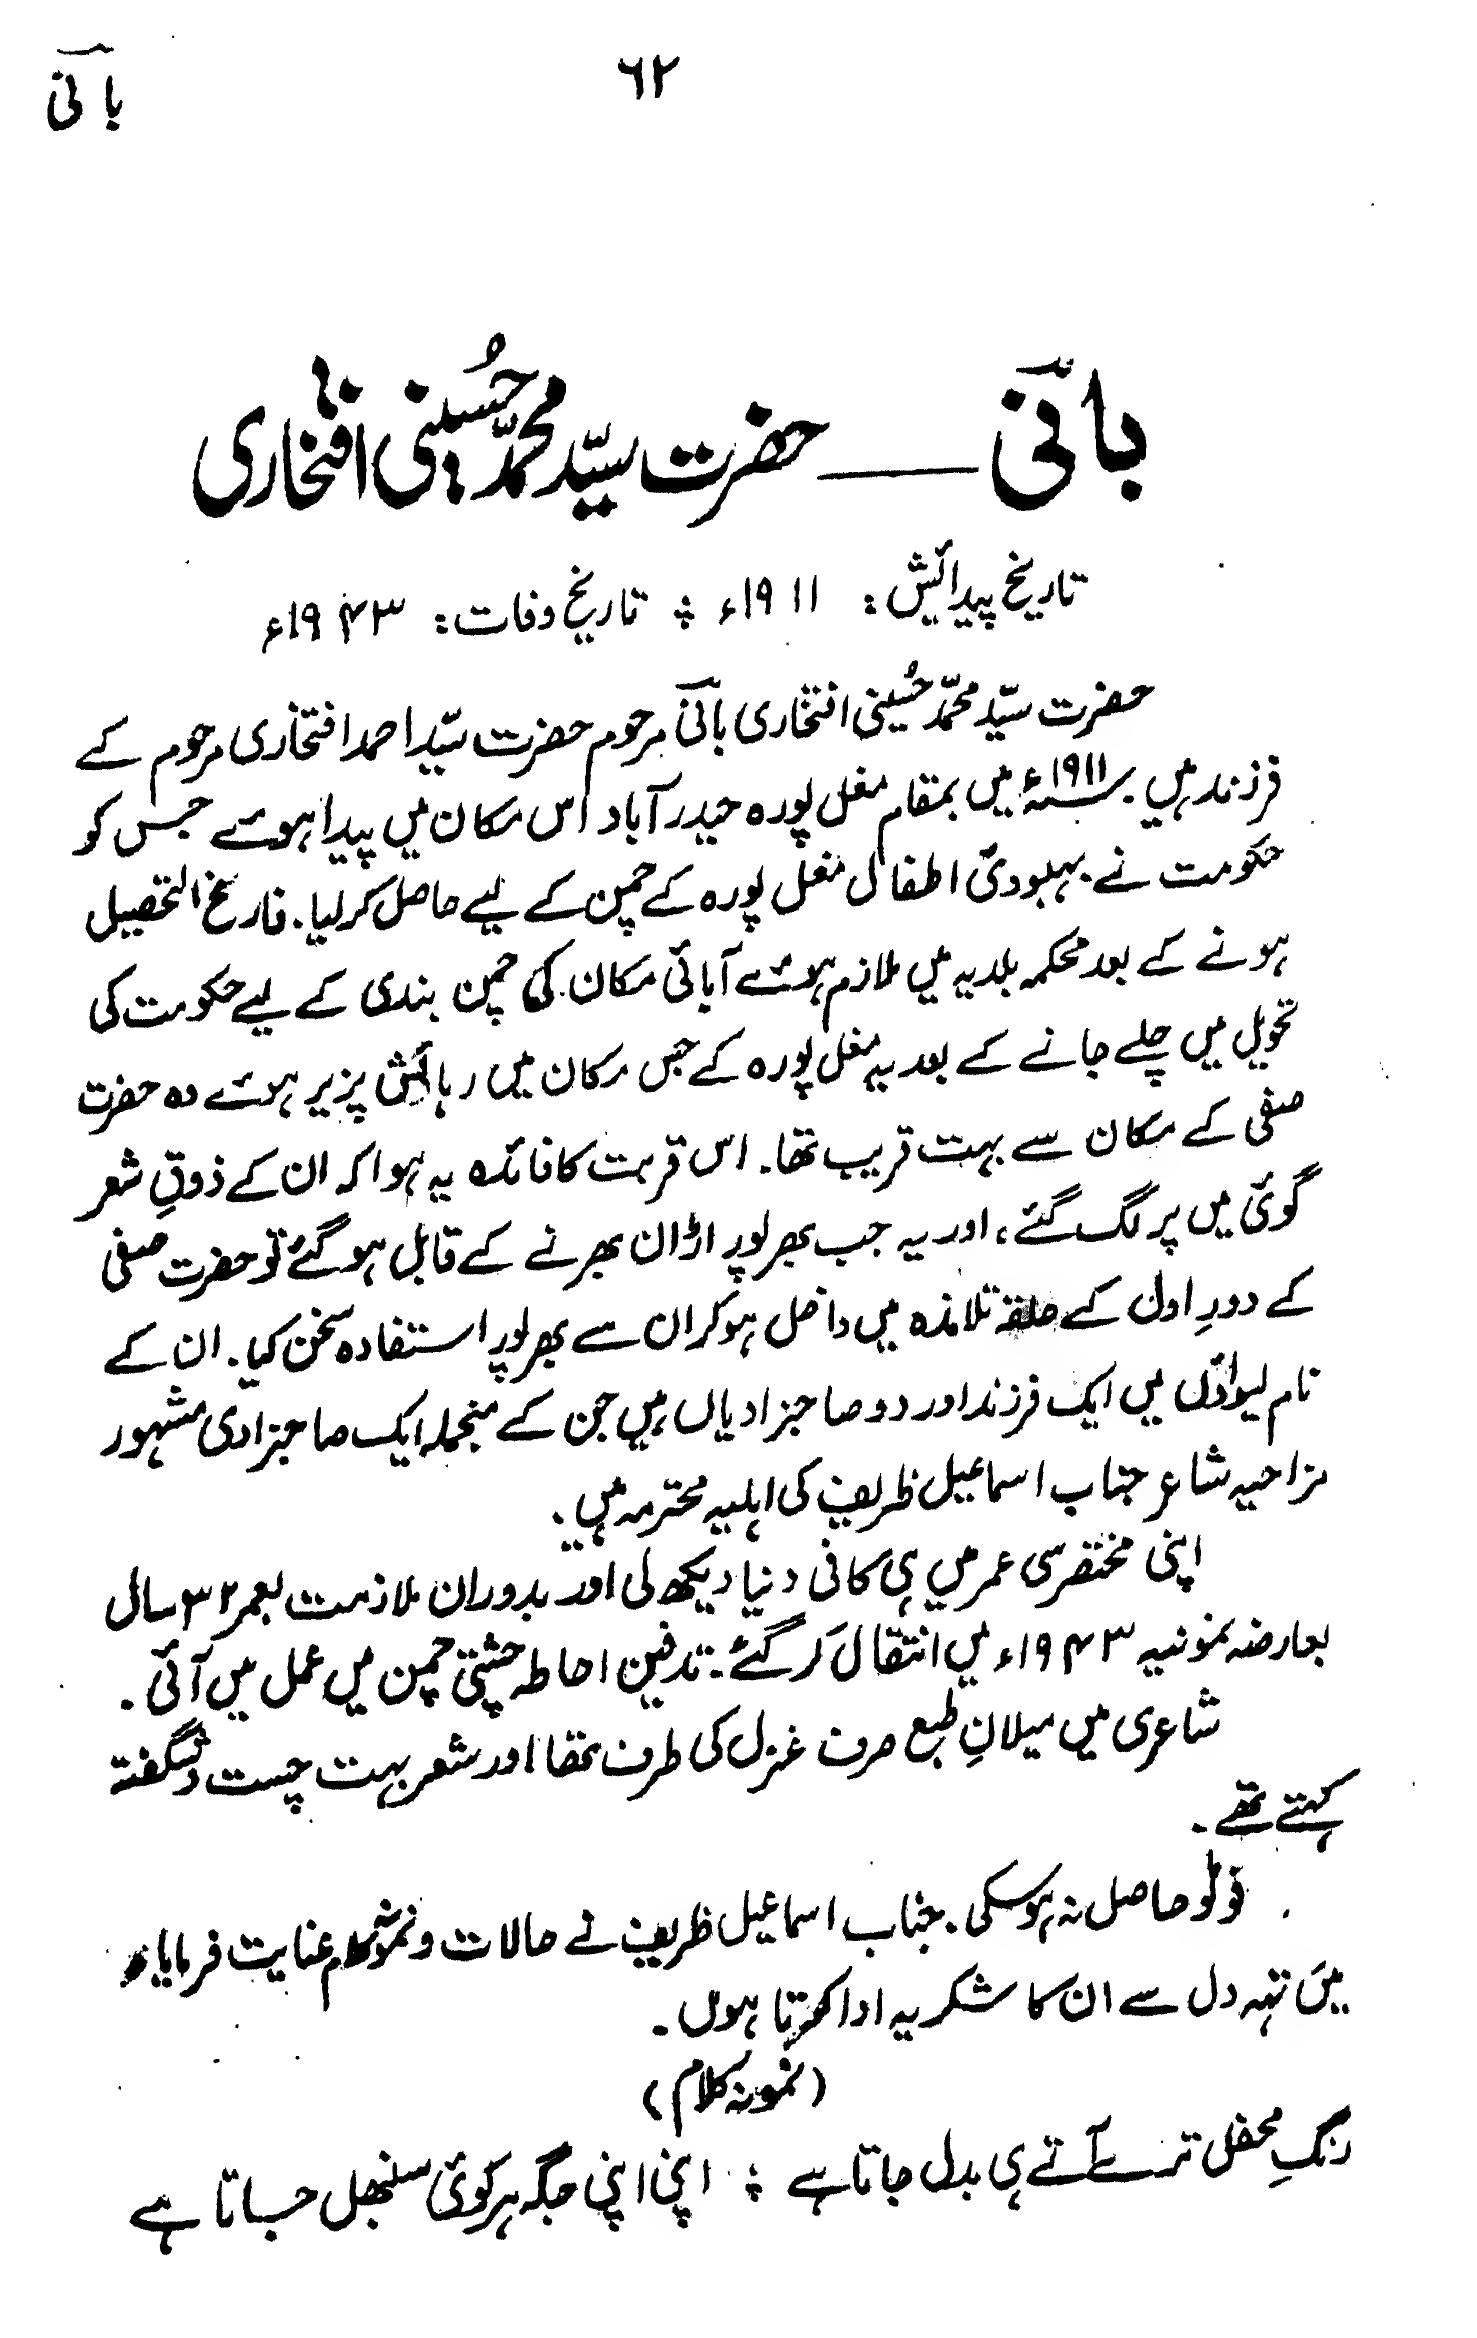 باقی
۶۲
باقی ــــ حضرت سیّد محمّد حُسینی افتخاری
تاریخ پیدائش: ۱۹۱۱ء ؞ تاریخ وفات: ۱۹۴۳ء
حضرت سیّد محمّد حُسینی افتخاری باقی مرحوم حضرت سیّد احمد افتخاری مرحوم کے
فرزند ہیں۔ ۱۹۱۱ء؁ میں بمقام مغل پورہ حیدرآباد اس مکان میں پیدا ہوے جس کو
حکومت نے بہبودیٔ اطفال مغل پورہ کے چمن کے لیے حاصل کرلیا۔ فارغ التحصیل
ہونے کے بعد محکمہ بلدیہ میں ملازم ہوئے آبائی مکان کی چمن بندی کے لیے حکومت کی
تحویل میں چلے جانے کے بعد یہ مغل پورہ کے جس مکان میں رہائش پزیر ہوئے وہ حضرت
صفی کے مکان سے بہت قریب تھا۔ اس قربت کا فائدہ یہ ہوا کہ ان کے ذوقِ شعر
گوئی میں پر لگ گئے، اور یہ جب بھرپور اڑان بھرنے کے قابل ہوگئے تو حضرت صفی
کے دورِ اول کے حلقہ تلامذہ میں داخل ہوکر ان سے بھرپور استفادہ سخن کیا۔ ان کے
نام لیواؤں میں ایک فرزند اور دو صاحبزادیاں ہیں جن کے منجملہ ایک صاحبزادی مشہور
مزاحیہ شاعر جناب اسماعیل ظریف کی اہلیہ محترمہ ہیں۔
اپنی مختصر سی عمر میں ہی کافی دنیا دیکھ لی اور بدوران ملازمت بعمر ۳۲ سال
بعارضہ نمونیہ ۱۹۴۳ء میں انتقال کر گئے۔ تدفین احاطہ چشتی چمن میں عمل میں آئی۔
شاعری میں میلانِ طبع صرف غزل کی طرف تھا اور شعر بہت چست و شگفتہ
کہتے تھے۔
فوٹو حاصل نہ ہوسکی۔ جناب اسماعیل ظریف نے حالات و نمونہ کلام عنایت فرمایا،
میں تہہ دل سے ان کا شکریہ ادا کرتا ہوں۔
(نمونہ کلام)
رنگِ محفل ترے آتے ہی بدل جاتا ہے ؞ اپنی اپنی جگہ ہر کوئی سنبھل جاتا ہے